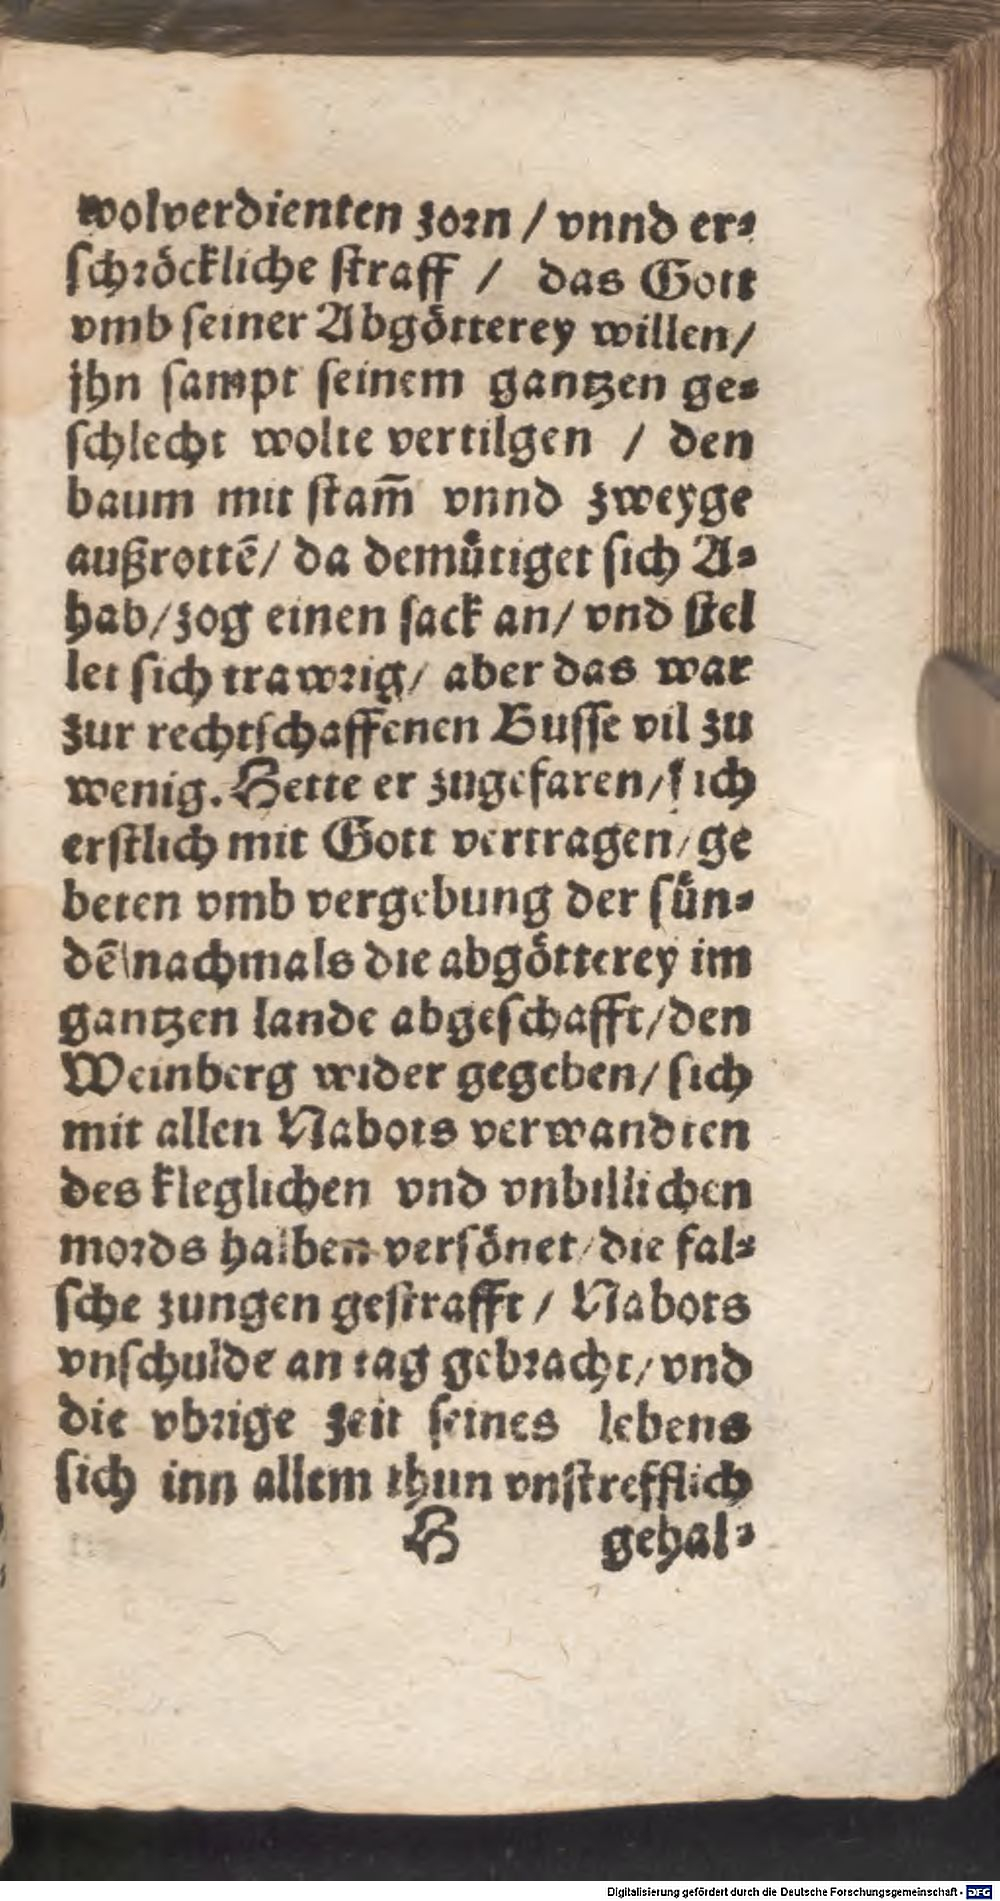 wolverdienten zorn / vnnd er⸗
ſchröckliche ſtraff / das Gott
vmb ſeiner Abgötterey willen/
jhn ſampt ſeinem gantzen ge⸗
ſchlecht wolte vertilgen / den
baum mit ſtam̃ vnnd zweyge
außrottẽ/ da demuͤtiget ſich A⸗
hab/zog einen ſack an/ vnd ſtel
let ſich trawrig/ aber das war
zur rechtſchaffenen Buſſe vil zu
wenig. Hette er zugefaren/ſich
erſtlich mit Gott vertragen/ge
beten vmb vergebung der ſuͤn⸗
dẽ/nachmals die abgötterey im
gantzen lande abgeſchafft/den
Weinberg wider gegeben/ ſich
mit allen Nabots verwandten
des kleglichen vnd vnbillichen
mords halben verſönet/die fal⸗
ſche zungen geſtrafft / Nabots
vnſchulde an tag gebracht/vnd
die vbrige zeit ſeines lebens
ſich inn allem thun vnſtrefflich
H gehal⸗
Digitalisierung gefördert durch die Deutsche Forschungsgemeinschaft - DFG